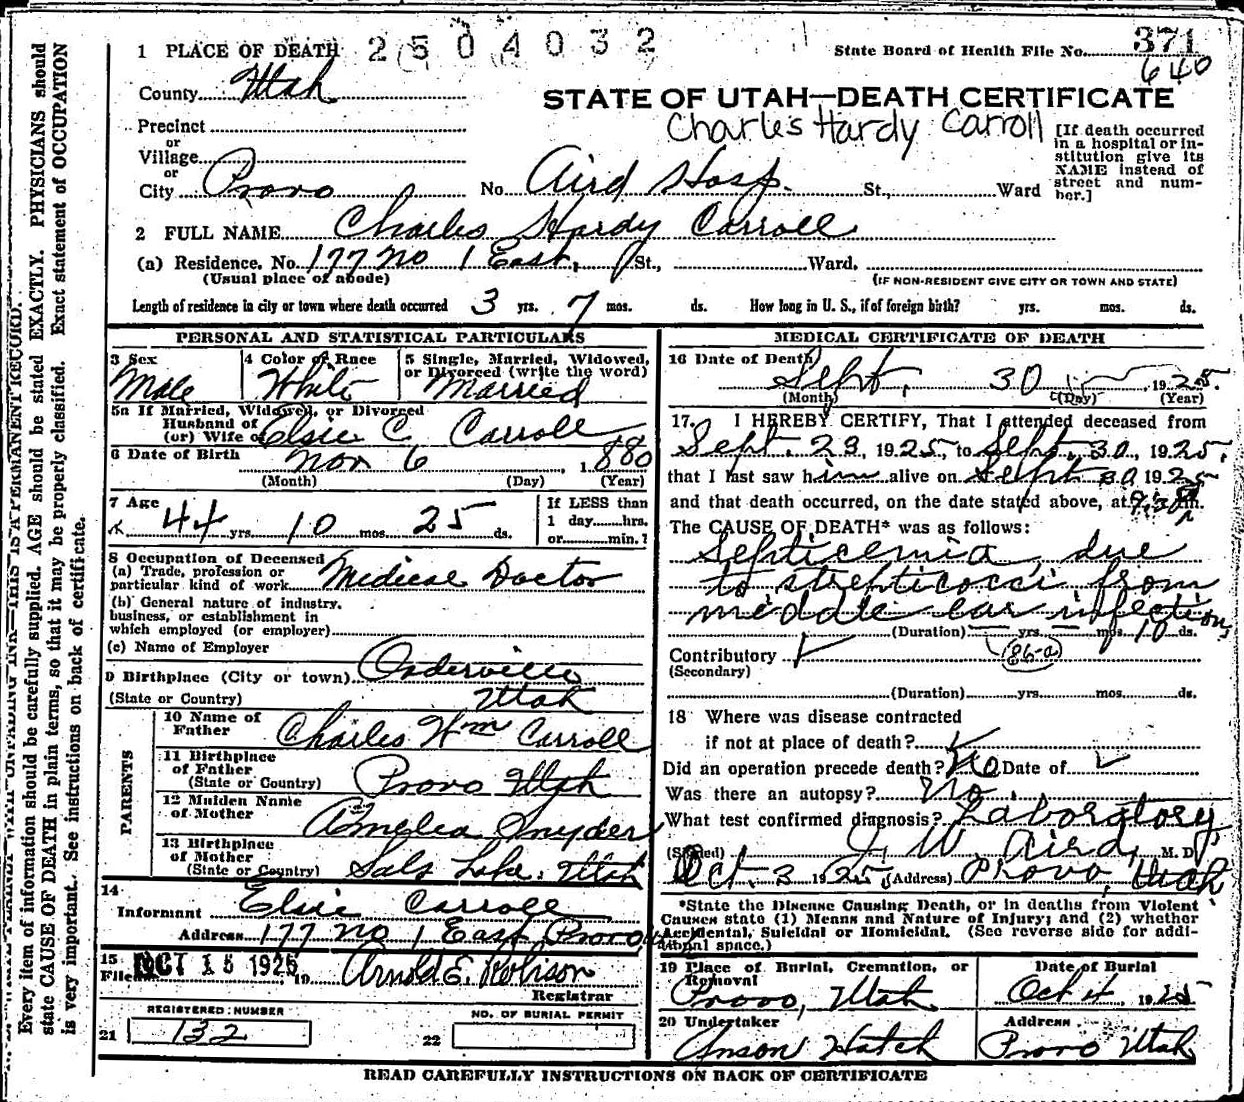 1 PLACE OF DEATH 2504032 State Board of Health File No. 371
640
County Utah
STATE OF UTAH—DEATH CERTIFICATE
Charles Hardy Carroll
Precinct
or
Village
or
City Provo No. Aird Hosp. St., Ward
[If death occurred
in a hospital or in-
stitution give its
NAME instead of
street and num-
ber.]
2 FULL NAME Charles Hardy Carroll
(a) Residence. No. 177 no 1 East, St., Ward.
(Usual place of abode) (IF NON-RESIDENT GIVE CITY OR TOWN AND STATE)
Length of residence in city or town where death occurred 3 yrs. 7 mos. ds. How long in U. S., if of foreign birth? yrs. mos. ds.
PERSONAL AND STATISTICAL PARTICULARS
3 Sex
Male
4 Color or Race
White
5 Single, Married, Widowed,
or Divorced (write the word)
Married
5a If Married, Widowed, or Divorced
Husband of
(or) Wife of Elsie C. Carroll
6 Date of Birth Nov 6, 1880
(Month) (Day) (Year)
7 Age
44 yrs. 10 mos. 25 ds.
If LESS than
1 day hrs.
or min.?
8 Occupation of Deceased
(a) Trade, profession or
particular kind of work Medical Doctor
(b) General nature of industry,
business, or establishment in
which employed (or employer)
(c) Name of Employer
9 Birthplace (City or town) Orderville
(State or Country) Utah
PARENTS
10 Name of
Father Charles Wm Carroll
11 Birthplace
of Father
(State or Country) Provo Utah
12 Maiden Name
of Mother Amelea Snyder
13 Birthplace
of Mother
(State or Country) Salt Lake, Utah
14
Informant Elsie Carroll
Address 177 no 1 East Provo
15
Filed OCT 15 1925, 19 Arnold E. Robison
Registrar
REGISTERED NUMBER
21 132
NO. OF BURIAL PERMIT
22
MEDICAL CERTIFICATE OF DEATH
16 Date of Death
Sept. 30, 1925.
(Month) (Day) (Year)
17. I HEREBY CERTIFY, That I attended deceased from
Sept. 23, 1925, to Sept. 30, 1925.
that I last saw him alive on Sept 30 1925
and that death occurred, on the date stated above, at m.
The CAUSE OF DEATH* was as follows:
Septicemia, due
to strepticocci from
meddle ear infection,
(Duration) yrs. mos. 10 ds.
Contributory (86-a)
(Secondary)
(Duration) yrs. mos. ds.
18 Where was disease contracted
if not at place of death?
Did an operation precede death? No Date of
Was there an autopsy? No.
What test confirmed diagnosis? Laboratory
(Signed) J. W. Aird, M. D.
Oct. 3 1925 (Address) Provo, Utah
*State the Disease Causing Death, or in deaths from Violent
Causes state (1) Means and Nature of Injury; and (2) whether
Accidental, Suicidal or Homicidal. (See reverse side for addi-
tional space.)
19 Place of Burial, Cremation, or
Removal
Provo, Utah.
Date of Burial
Oct 4, 1925
20 Undertaker
Anson Hatch
Address
Provo Utah
READ CAREFULLY INSTRUCTIONS ON BACK OF CERTIFICATE
Every item of information should be carefully supplied. AGE should be stated EXACTLY. PHYSICIANS should
state CAUSE OF DEATH in plain terms, so that it may be properly classified. Exact statement of OCCUPATION
is very important. See instructions on back of certificate.